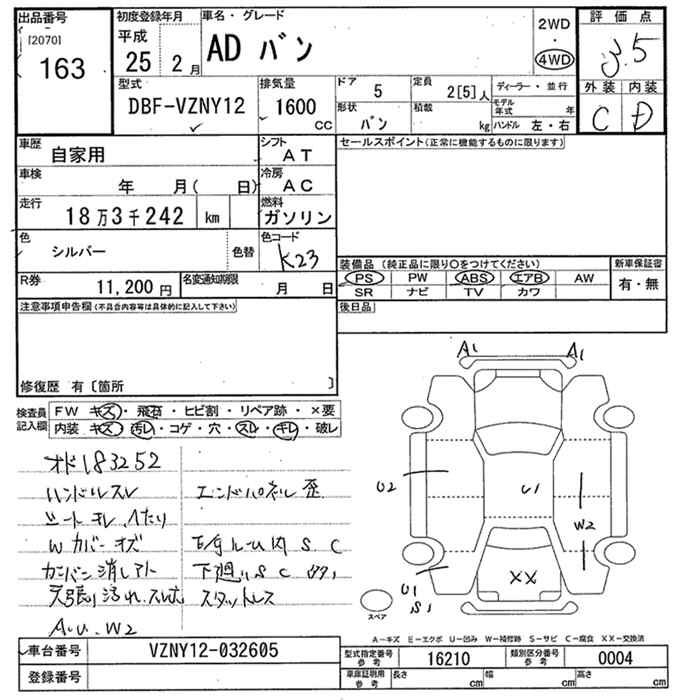 出品番号
[2070]
163
初度登録年月
平成
25 2月
車名・グレード
AD バン
2WD
・
4WD
評価点
3.5
外装 内装
C D
型式
DBF-VZNY12
排気量
1600
CC
ドア
5
定員
2[5]人
ディーラー・並行
形状
バン
積載
kg
モデル
年式 年
ハンドル 左・右
車歴
自家用
シフト
AT
セールスポイント(正常に機能するものに限ります)
車検
年 月( 日)
冷房
AC
走行
18万3千242 km
燃料
ガソリン
色
シルバー
色替
色コード
K23
装備品 (純正品に限り〇をつけてください)
PS PW ABS エアB AW
SR ナビ TV カワ
新車保証書
有・無
R券
11,200円
名変通知期限
月 日
注意事項申告欄(不具合内容等は具体的に記入して下さい)
後日品
修復歴 有〔箇所 〕
検査員
記入欄
FW キズ・飛石・ヒビ割・リペア跡・×要
内装 キズ・汚レ・コゲ・穴・スレ・キレ・破レ
オド183252
ハンドルスレ
シートキレ、ヘたり
Wカバーキズ
カンバン消しアト
天張り汚れ、スレ
A.U.W2
エンドパネル歪
S.C
下廻りS C
スタットレス
A1
A1
U2
U1
W2
XX
U1
S1
スペア
A-キズ E-エクボ U-凹み W-補修跡 S-サビ C-腐食 XX-交換済
車台番号
VZNY12-032605
登録番号
型式指定番号
参考
16210
類別区分番号
参考
0004
車庫証明用
参考
長さ cm
幅 cm
高さ cm